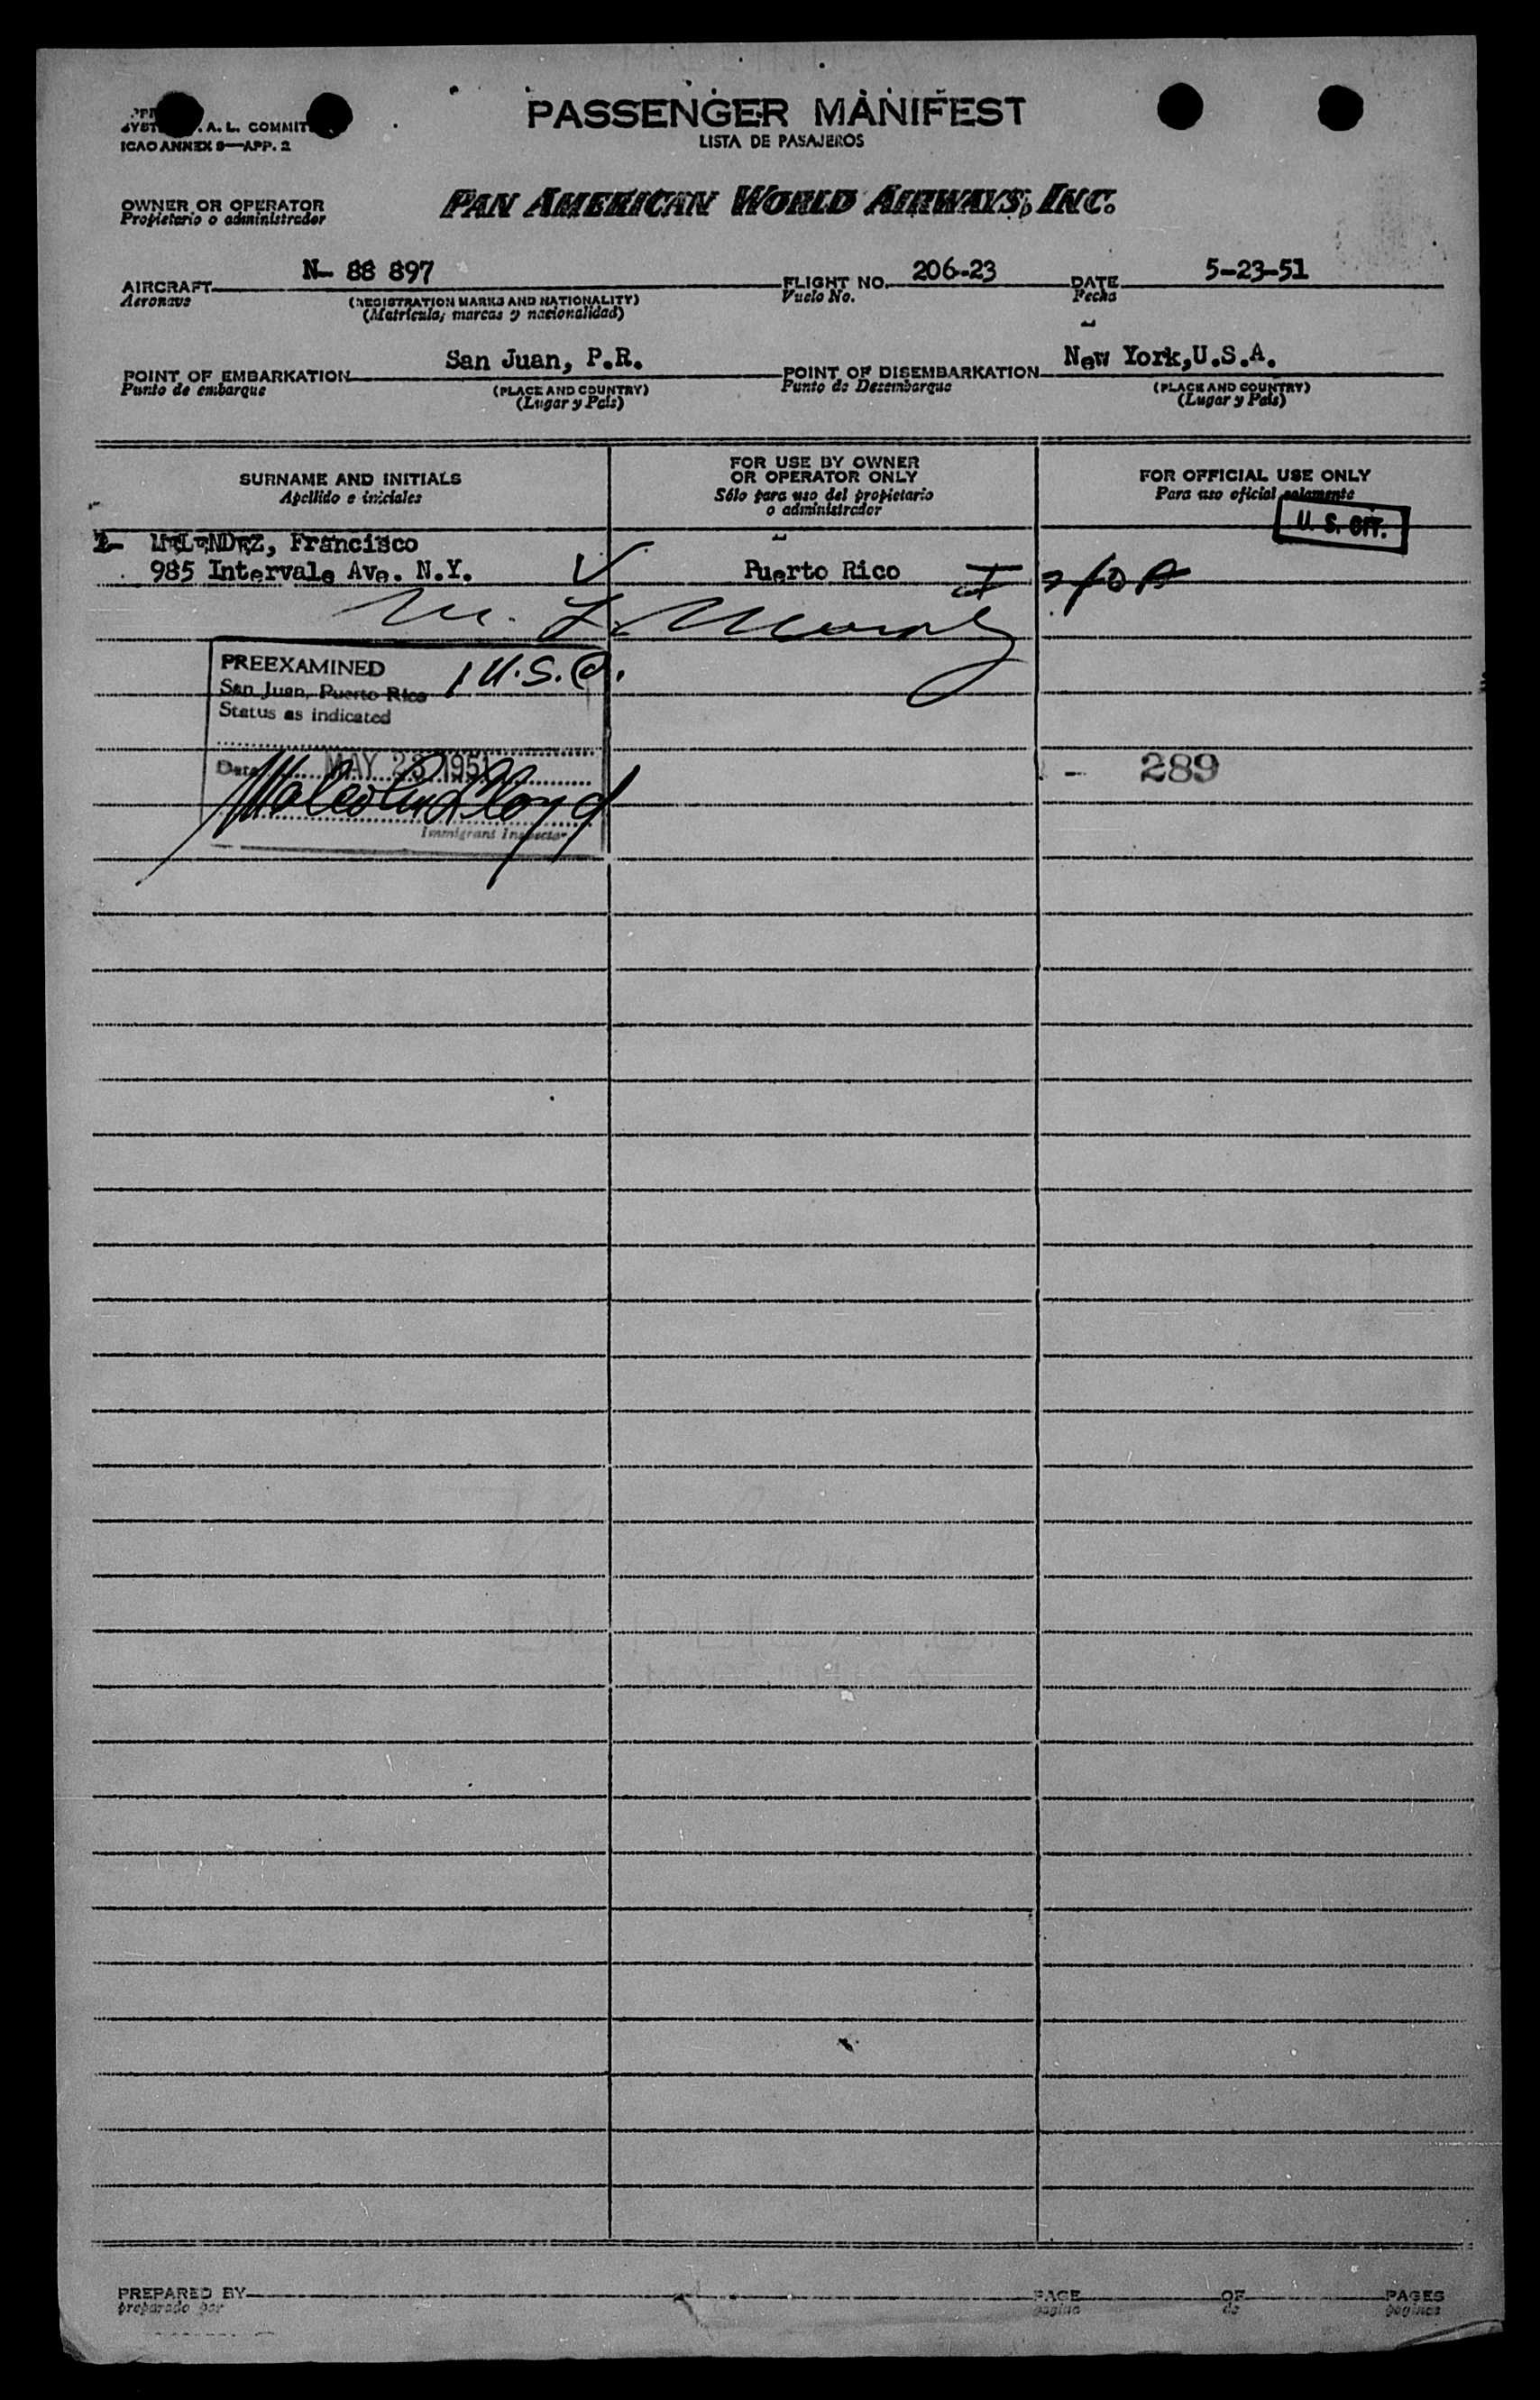 PASSENGER MANIFEST
LISTA DE PASAJEROS
A. L.
ICAO ANNEX 9—APP. 2
OWNER OR OPERATOR
Propietario o administrador
PAN AMERICAN WORLD AIRWAYS, INC.
AIRCRAFT N- 88 897 FLIGHT NO. 206-23 DATE 5-23-51
Aeronave (REGISTRATION MARKS AND NATIONALITY) Vuelo No. Fecha
(Matrícula, marcas y nacionalidad)
POINT OF EMBARKATION San Juan, P.R. POINT OF DISEMBARKATION New York,U.S.A.
Punto de embarque (PLACE AND COUNTRY) Punto de Desembarque (PLACE AND COUNTRY)
(Lugar y País) (Lugar y País)
SURNAME AND INITIALS FOR USE BY OWNER OR OPERATOR ONLY FOR OFFICIAL USE ONLY
Apellido e iniciales Sólo para uso del propietario o administrador Para uso oficial solamente
U. S. CIT.
MELENDEZ, Francisco
985 Intervale Ave. N.Y. Puerto Rico
PREEXAMINED 1 U.S.C.
San Juan, Puerto Rico
Status as indicated
Date MAY 23 1951
Immigrant Inspector
- 289
PREPARED BY PAGE OF PAGES
preparado por página de páginas